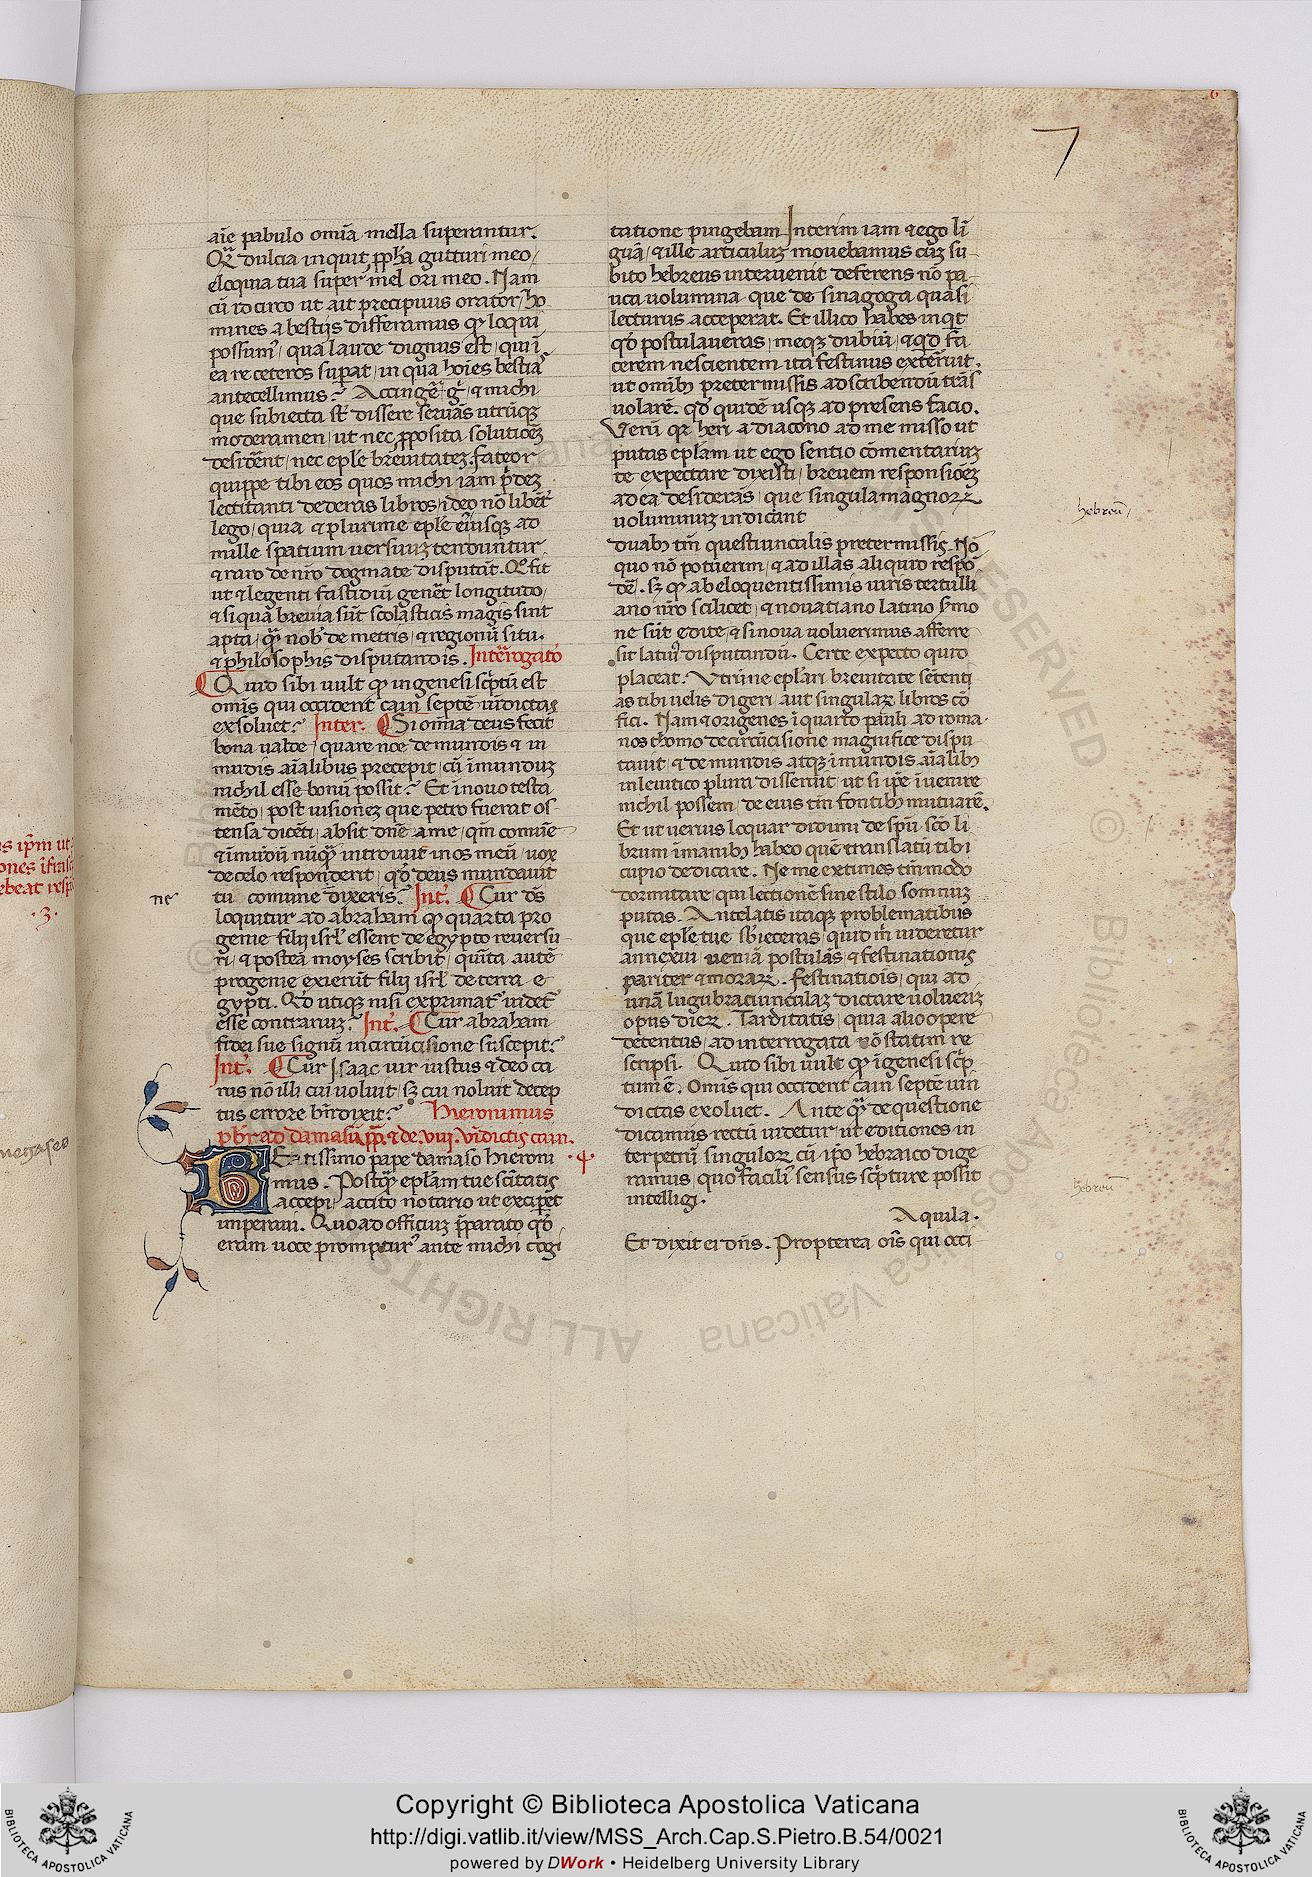 7
6
aīe pabulo omīa mella superantur.
Qr̄ dulcia inquit ꝓph̄a gutturi meo/
eloquia tua super mel ori meo. Nam
cū iocirco ut ait precipuus orator/ ho
mines a bestijs differamus ꝙ loqui
possum᷒/ qua laude dignus est/ qui ī
ea re ceteros suꝑat/ in qua hoīes bestiā
antecellimus? Accingē gͦ/ ⁊ michi
que subiecta sn̄t dissere seruās utrūqꝫ
moderamen/ ut nec ꝓposita solutiōeꝫ
desidēnt/ nec epl̄e breuitateꝫ. fateor
quippe tibi eos quos michi iam pͥdeꝫ
lectitanti dederas libros/ ideo nō libēt᷒
lego/ quia ⁊ plurime epl̄e eiusqꝫ ad
mille spatium uersuuꝫ tenduntur
⁊ raro de nr̄o dogmate disputāt. Qͦ fit
ut ⁊ legenti fastidiū generet longitudo/
⁊ si qua breuia sūt scolasticis magis sint
apta/ qͣꝫ nob᷒ de metris/ ⁊ regionū situ.
⁊ philosophis disputandis. Interrogatō
Quid sibi uult ꝙ in genesi scͥptū est
omīs qui occiderit cain septē uindictas
exsoluet? Inter. Si omīa deus fecit
bona ualde/ quare noe de mundis ⁊ in
mūdis aīalibus precepit/ cū īmunduꝫ
nichil esse bonū possit? Et ī nouo testa
mēto/ post uisioneꝫ que petro fuerat os
tensa dicēti/ absit dn̄e a me/ qm̄ comūe
⁊ īmūdū nūqͣꝫ introiuit in os meū/ uox
de celo responderit/ qd̄ deus mundauit
tu comune dixeris? Int᷒. Cur ds̄
loquitur ad abraham ꝙ quarta pro
genie filij isrl̄ essent de egypto reuersu
ri/ ⁊ postea moyses scribit/ quīta autē
progenie exierūt filij isrl̄ de terra e
gypti. Qd̄ utiqꝫ nisi exprimat᷒ uidet᷒
esse contrariuꝫ? Int᷒. Cur abraham
fidei sue signū in circūcisione suscepit?
Int᷒. Cur Isaac uir iustus ⁊ deo ca
rus nō illi cui uoluit/ sꝫ cui noluit decep
tus errore bn̄dixit? Hieronimus
pbr̄ ad damasū pp̄ ⁊ de .vij. vīdictis cain.
BEatissimo pape damaso hieroni
mus. Postqͣꝫ epl̄am tue scītatis
accepi/ accito notario ut exciperet
imperaui. Quo ad officiuꝫ ꝑparato qd̄
eram uoce prompturꝰ ante michi cogi
·4·
ne
tatione pingebam Interim iam ⁊ ego lī
guā/ ⁊ ille articuluꝫ mouebamus cuꝫ su
bito hebreus interuenit deferens nō pa
uca uolumina que de sinagoga quasi
lecturus acceperat. Et illico habes inqͥt
qd̄ postulaueras/ meqꝫ dubiū/ ⁊ qͥd fa
cerem nescientem ita festinus exterruit.
ut omībꝫ pretermissis ad scribendū trās
uolarē. qd̄ quidē usqꝫ ad presens facio.
Verū qꝛ heri a diacono ad me misso ut
putas epl̄am ut ego sentio cōmentariuꝫ
te expectare dixisti/ breuem responsiōeꝫ
ad ea desiderās/ que singula magnoꝝ
uoluminuꝫ indicant
duabꝫ tm̄ questiunculis pretermissis. Nō
quo nō potuerim/ ⁊ ad illas aliquid respō
dē. sꝫ ꝙ ab eloquentissimis uiris tertulli
ano nr̄o scilicet/ ⁊ nouatiano latino sͬmo
ne sūt edite/ ⁊ si noua uoluerimus afferre
sit latiꝰ disputandū. Certe expecto quid
placeat. Vtrūne epl̄ari breuitate sētenti
as tibi uelis digeri/ aut singulaꝝ libros cō
fici. Nam ⁊ origenes ī quarto pauli ad roma
nos thomo de circūcisione magnifice dispu
tauit/ ⁊ de mundis atqꝫ īmūndis aīalibꝫ
in leuitico plura disseruit/ ut si ip̄e īuenire
nichil possem/ de eius tm̄ fontibꝫ mutuarē.
Et ut uerius loquar didimi de spū scō li
brum ī manibꝫ habeo quē translatū tibi
cupio dedicare. Ne me extimes tm̄modo
dormitare/ qui lectionē sine stilo somniuꝫ
putas. Antelatis itaqꝫ problematibus
que epl̄e tue sb̄ieceras/ quid m̄ uideretur
annexui/ ueniā postulās/ ⁊ festinationis
pariter ⁊ moraꝝ. festinatiois/ qui ad
unā lugubratiunculaꝫ dictare uolueriꝫ
opus dieꝝ. Tarditatis/ quia alio opere
detentus/ ad interrogata nō statim re
scripsi. Quid sibi uult ꝙ ī genesi scͥp
tum ē. Omīs qui occiderit cain septē uin
dictas exoluet. Ante qͣꝫ de questione
dicamus rectū uidetur/ ut editiones in
terpretū singuloꝝ cū ip̄o hebraico dige
ramus/ quo facilīꝰ sensus scͥpture possit
intelligi.
Aquila.
Et dixit ei dn̄s. Propterea oīs qui occi
hebreū/
hebreū
·3·
Copyright © Biblioteca Apostolica Vaticana
http://digi.vatlib.it/view/MSS_Arch.Cap.S.Pietro.B.54/0021
powered by DWork • Heidelberg University Library
BIBLIOTECA APOSTOLICA VATICANA
BIBLIOTECA APOSTOLICA VATICANA